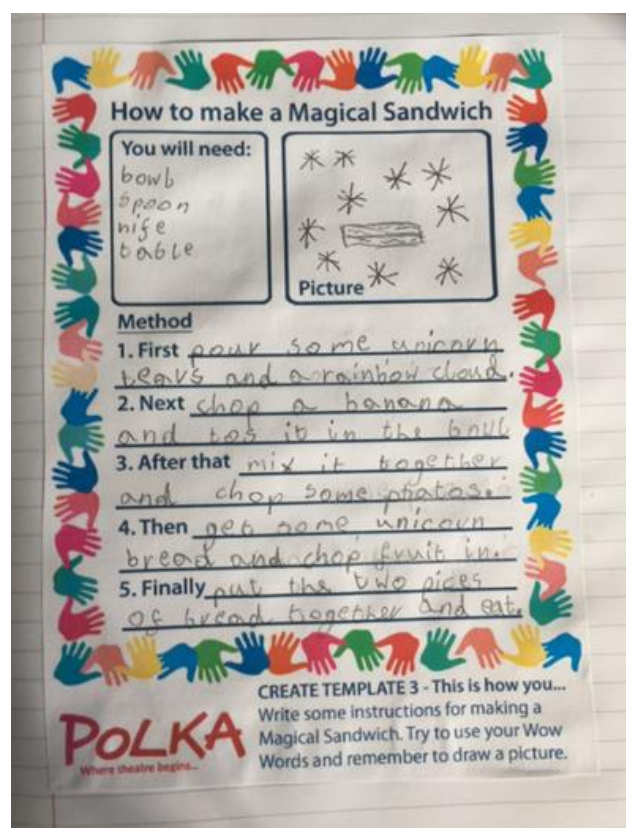 How to make a Magical Sandwich
You will need:
bowb
spoon
nife
table
Picture
Method
1. First pour some unicorn
tears and a rainbow cloud.
2. Next chop a banana
and tos it in the
3. After that mix it together
and chop some photos.
4. Then get some unicorn
bread and chop fruit in.
5. Finally put the two pices
of bread together and eat.
CREATE TEMPLATE 3 - This is how you...
Write some instructions for making a
Magical Sandwich. Try to use your Wow
Words and remember to draw a picture.
POLKA
Where theatre begins...